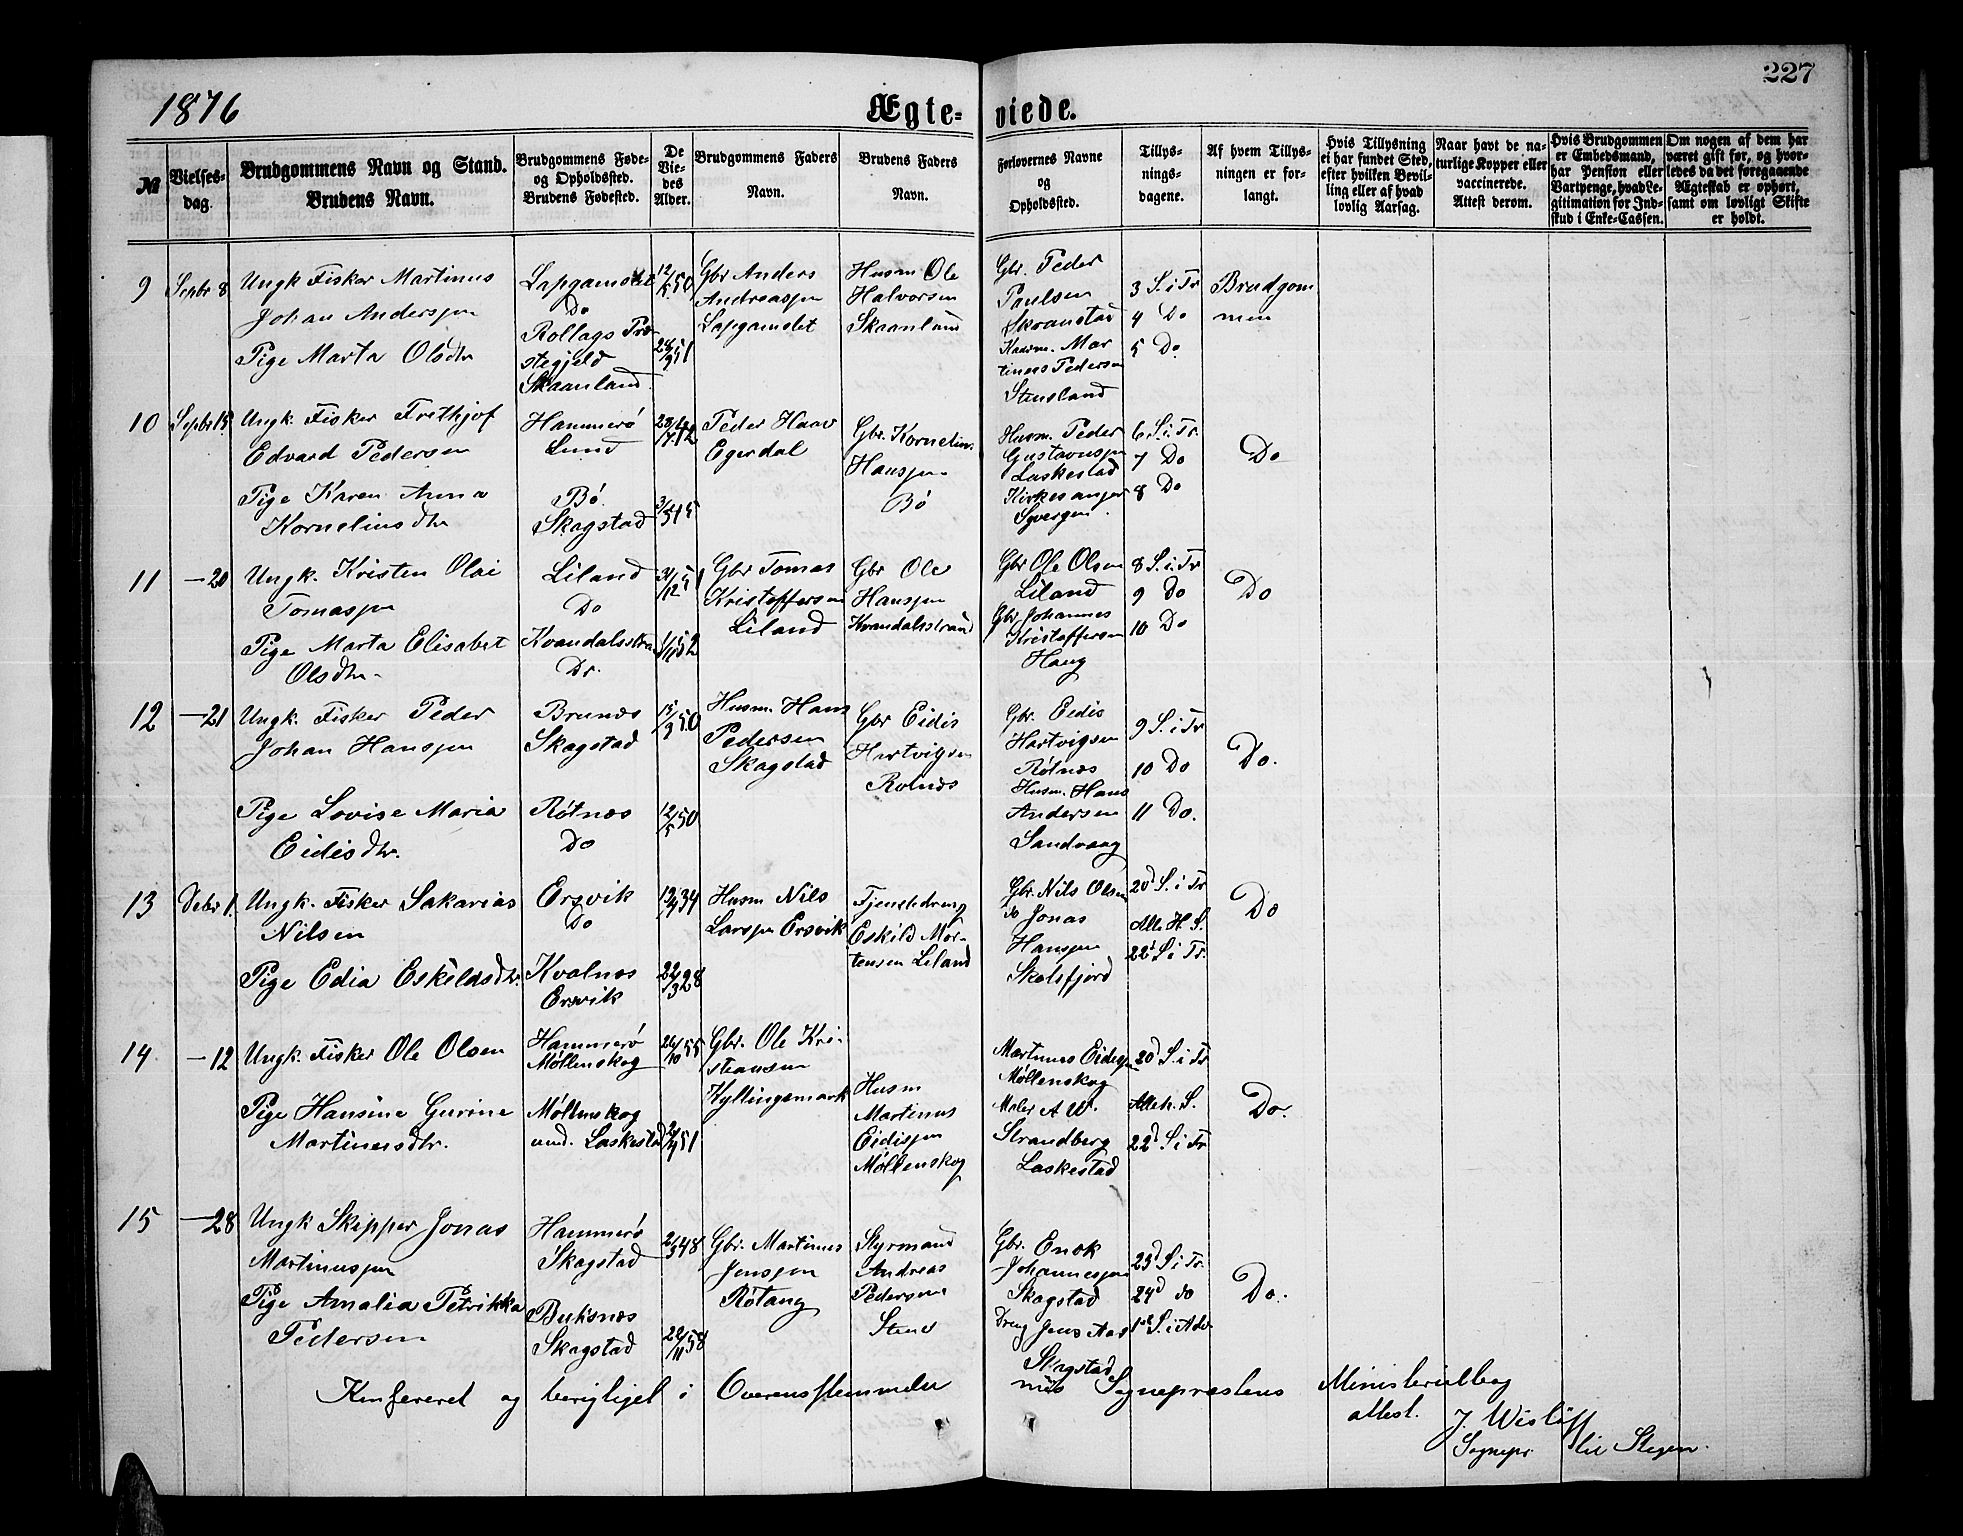 227
1876
Ægte-
viede.
№
Vielses-
dag.
Brudgommens Navn og Stand.
Brudens Navn.
Brudgommens Føde-
og Opholdssted.
Brudens Fødested.
De
Vie-
des
Alder.
Brudgommens Faders
Navn.
Brudens Faders
Navn.
Forlovernes Navne
og
Opholdssted.
Tillys-
nings-
dagene.
Af hvem Tillys-
ningen er for-
langt.
Hvis Tillysning
ei har fundet Sted,
efter hvilken Bevil-
ling eller af hvad
lovlig Aarsag.
Naar havt de na-
turlige Kopper eller
vaccinerede.
Attest derom.
Hvis Brudgommen
er Embedsmand,
har Pension eller
Vartpenge, hvad Le-
gitimation for Ind-
skud i Enke-Cassen.
Om nogen af dem har
været gift før, og hvor-
ledes da det foregaaende
Ægteskab er ophørt,
samt om lovligt Skifte
er holdt.
9
Septbr 8
Ungk Fisker Martinus
Johan Anderssen
Pige Marta Olsdtr
Lapgamslet
Do
Rollags Præ
stegjeld
Skaanland
12/5 50
Gbr Anders
Andreassen
Lapgamslet
Husm Ole
Halvorsen
Skaanland
Gbr. Peder
Paulsen
Skranstad
Martinus Pedersen
Stensland
3 S. i Tr
4 Do
5 Do
Brudgom
men
10
Septbr 15
Ungk. Fisker Frithjof
Edvard Pedersen
Pige Karen Anna
Kornelius dtr
Hammerø
Lund
Bø
Skagstad
Peder Haav
Egerdal
Gbr. Kornelius
Hanssen
Bø
Husm. Peder
Gustavussen
Laskestad
Kirkesanger
6 S. i Tr.
7 Do
8 Do
Do
11
—20
Ungk. Kristen Olai
Tomassen
Pige Marta Elisabet
Olsdtr.
Liland
Do
Kvandalsstra
Do.
31/12 51
1/11 52
Gbr Tomas
Kristoffersen
Liland
Gbr Ole
Hanssen
Kvandalsstrand
Gbr Ole Olsen
Liland
Gbr Johannes
Kristoffersen
Haug
8 S. i Tr
9 Do
10 Do
Do
12
—21
Ungk. Fisker Peder
Johan Hanssen
Pige Lovise Maria
Eidisdtr.
Brunæs
Skagstad
Røtnæs
Do
15/9 50
12/5 50
Husm. Hans
Pedersen
Skagstad
Gbr Eidis
Hertvigsen
Rotnæs
Gbr. Eidis
Hartvigsen
Røtnæs
Husm. Hans
Andersen
Sandvaag
9 S. i Tr
10 Do
11 Do.
Do.
13
Debr 1.
Ungk. Fisker Sakarias
Nilsen
Pige Edia Eskildsdtr.
Ersvik
Do
Kvalnæs
Ersvik
22/3 28
Husm Nils
Larssen Ersvik
Tjenstdreng
Eskild Mor-
tensen Liland
Gbr. Nils Olsen
do Jonas
Hanssen
Skelsfjord
20d S. i Tr
Alle H. S.
22d S i Tr.
Do
14
—12
Ungk. Fisker Ole Olsen
Pige Hansine Gurine
Martinusdtr.
Hammerø
Møllenskog
Møllenskog
und. Laskestad
Gbr. Ole Kri-
stiansen
Kyllingemark
Husm
Martinus
Eidissen
Møllenskog
Martinus Eidissen
Møllenskog
Maler A W.
Strandberg
Laskestad
20d S. i Tr
Alleh. S.
22d S i Tr
Do.
15
—28
Ungk Skipper Jonas
Martinussen
Pige Amalia Petrikka
Pedersen
Hammerø
Skagstad
Buksnæs
Skagstad
22/11 58
Gbr. Martinus
Jenssen
Røtang
Styrmand
Andreas
Pedersen
Steno
Gbr. Enok
Johannessen
Skagstad
Dreng Jens Aas
Skagstad
23d S i Tr.
24d do
1st S. i Adv
Do.
Konfereret og berigtiget i Overensstemmelse med Sognepræstens Ministerialbog
attest.
J. Wisløff
Sognepr. til Stegen.